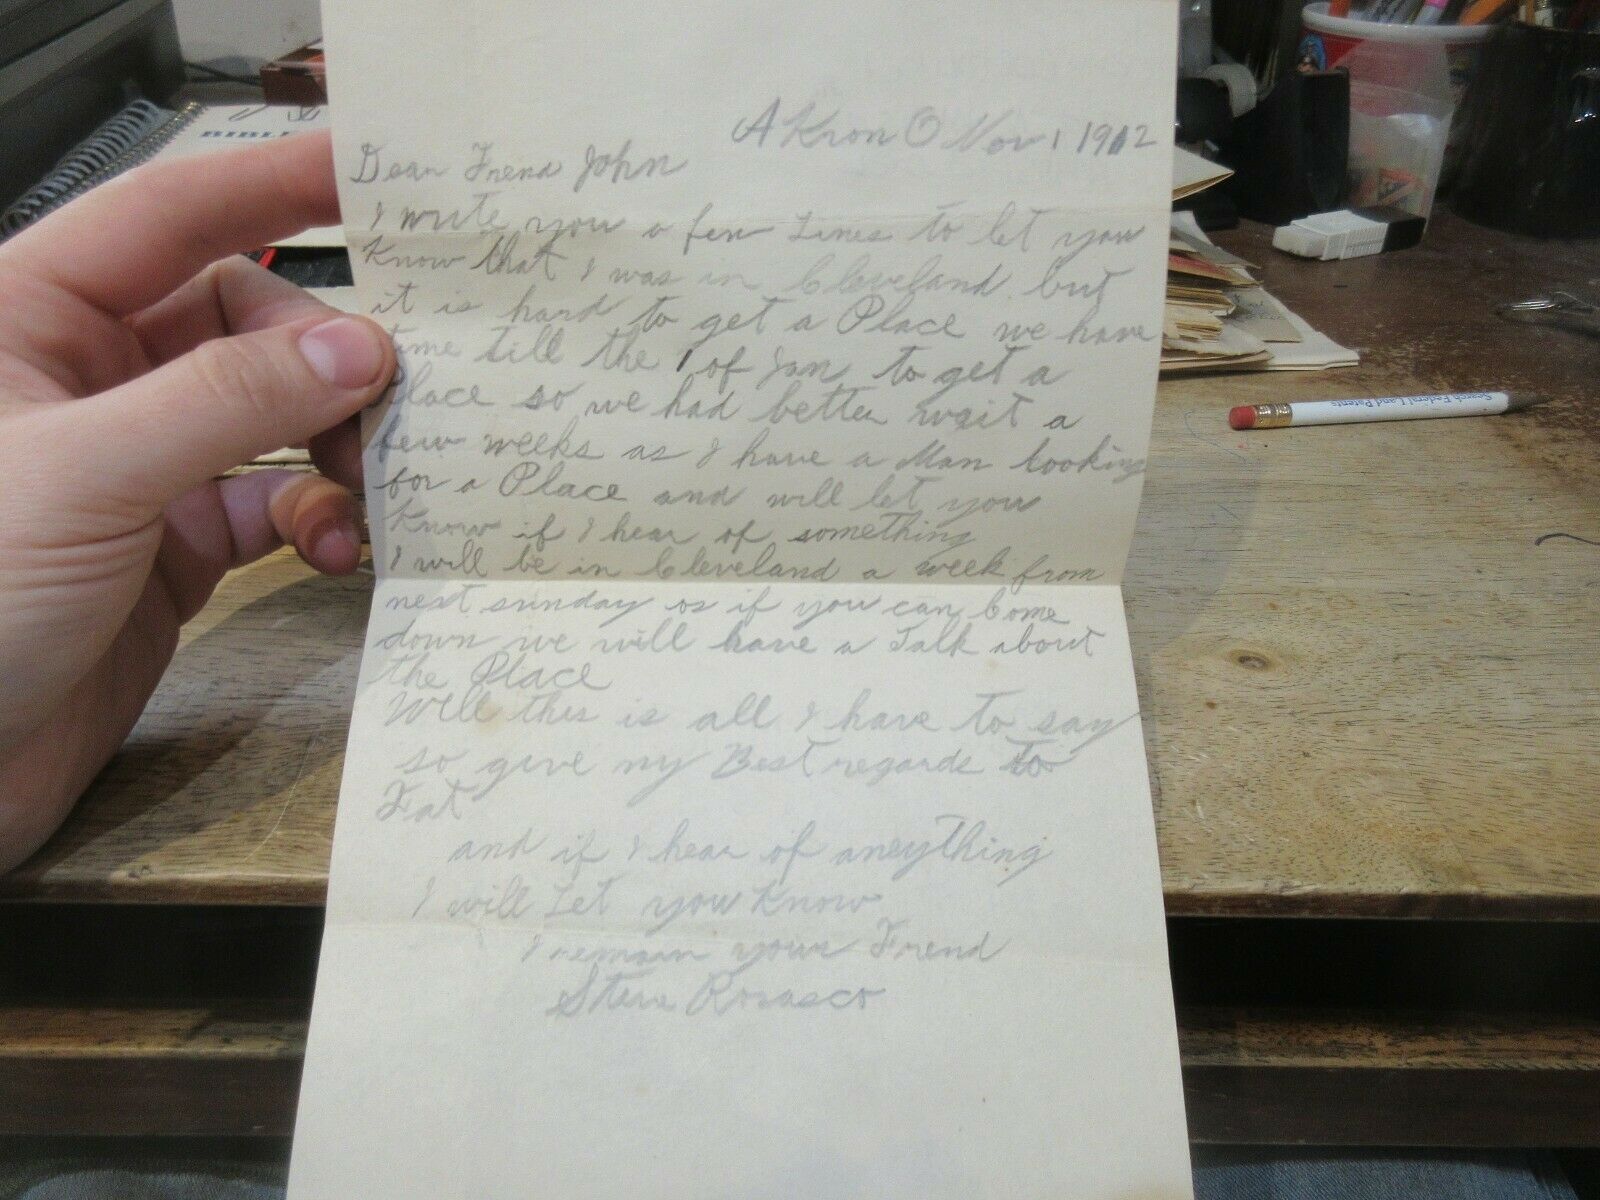 BIBL
Akron O Nov 1 1912
Dear Frend John
I write you a few Lines to let you
Know that I was in Cleveland but
it is hard to get a Place we have
time till the 1 of Jan to get a
Place so we had better wait a
few weeks as I have a Man looking
for a Place and will let you
Know if I hear of something
I will be in Cleveland a week from
next sunday so if you can Come
down we will have a Talk about
the Place
Well this is all I have to say
so give my Best regards to
Fat
and if I hear of aneything
I will Let you Know
I remain your Frend
Steve Rosasco
Search Federal Land Patents